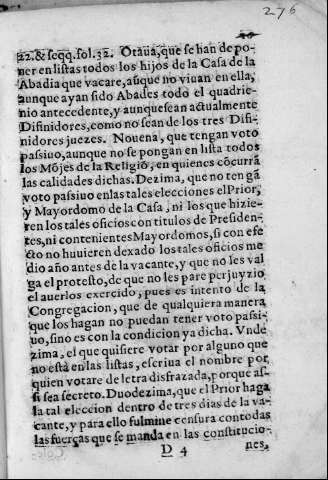 276
22.&seqq.fol.32. Otaua, que se han de po-
ner en listas todos los hijos de la Casa de la
Abadia que vacare, aũque no viuan en ella,
aunque ayan sido Abades todo el quadrie-
nio antecedente, y aunque sean actualmente
Difinidores, como no sean de los tres Difi-
nidores juezes. Nouena, que tengan voto
passiuo, aunque no se pongan en lista todos
los Mõjes de la Religiõ, en quienes cõcurrã
las calidades dichas. Dezima, que no tengã
voto passiuo en las tales elecciones el Prior,
y Mayordomo de la Casa, ni los que hizie-
ren los tales oficios con titulos de Presiden-
tes, ni contenientes Mayordomos, si con efe
cto no huuieren dexado los tales oficios me
dio año antes de la vacante, y que no les val
ga el protesto, de que no les pare perjuyzio
el auerlos exercido, pues es intento de la
Congregacion, que de qualquiera manera
que los hagan no puedan tener voto passi-
uo, sino es con la condicion ya dicha. Vnde
zima, el que quisiere votar por alguno que
no està en las listas, escriua el nombre por
quien votare de letra disfrazada, porque as-
si sea secreto. Duodezima, que el Prior haga
la tal eleccion dentro de tres dias de la va-
cante, y para ello fulmine censura con todas
las fuerças que se manda en las constitucio-
D 4 nes,